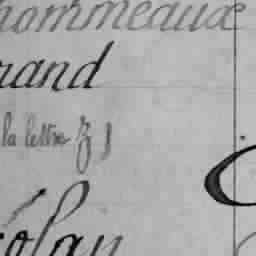 hommeaux
rand
la lettre Z)
colau